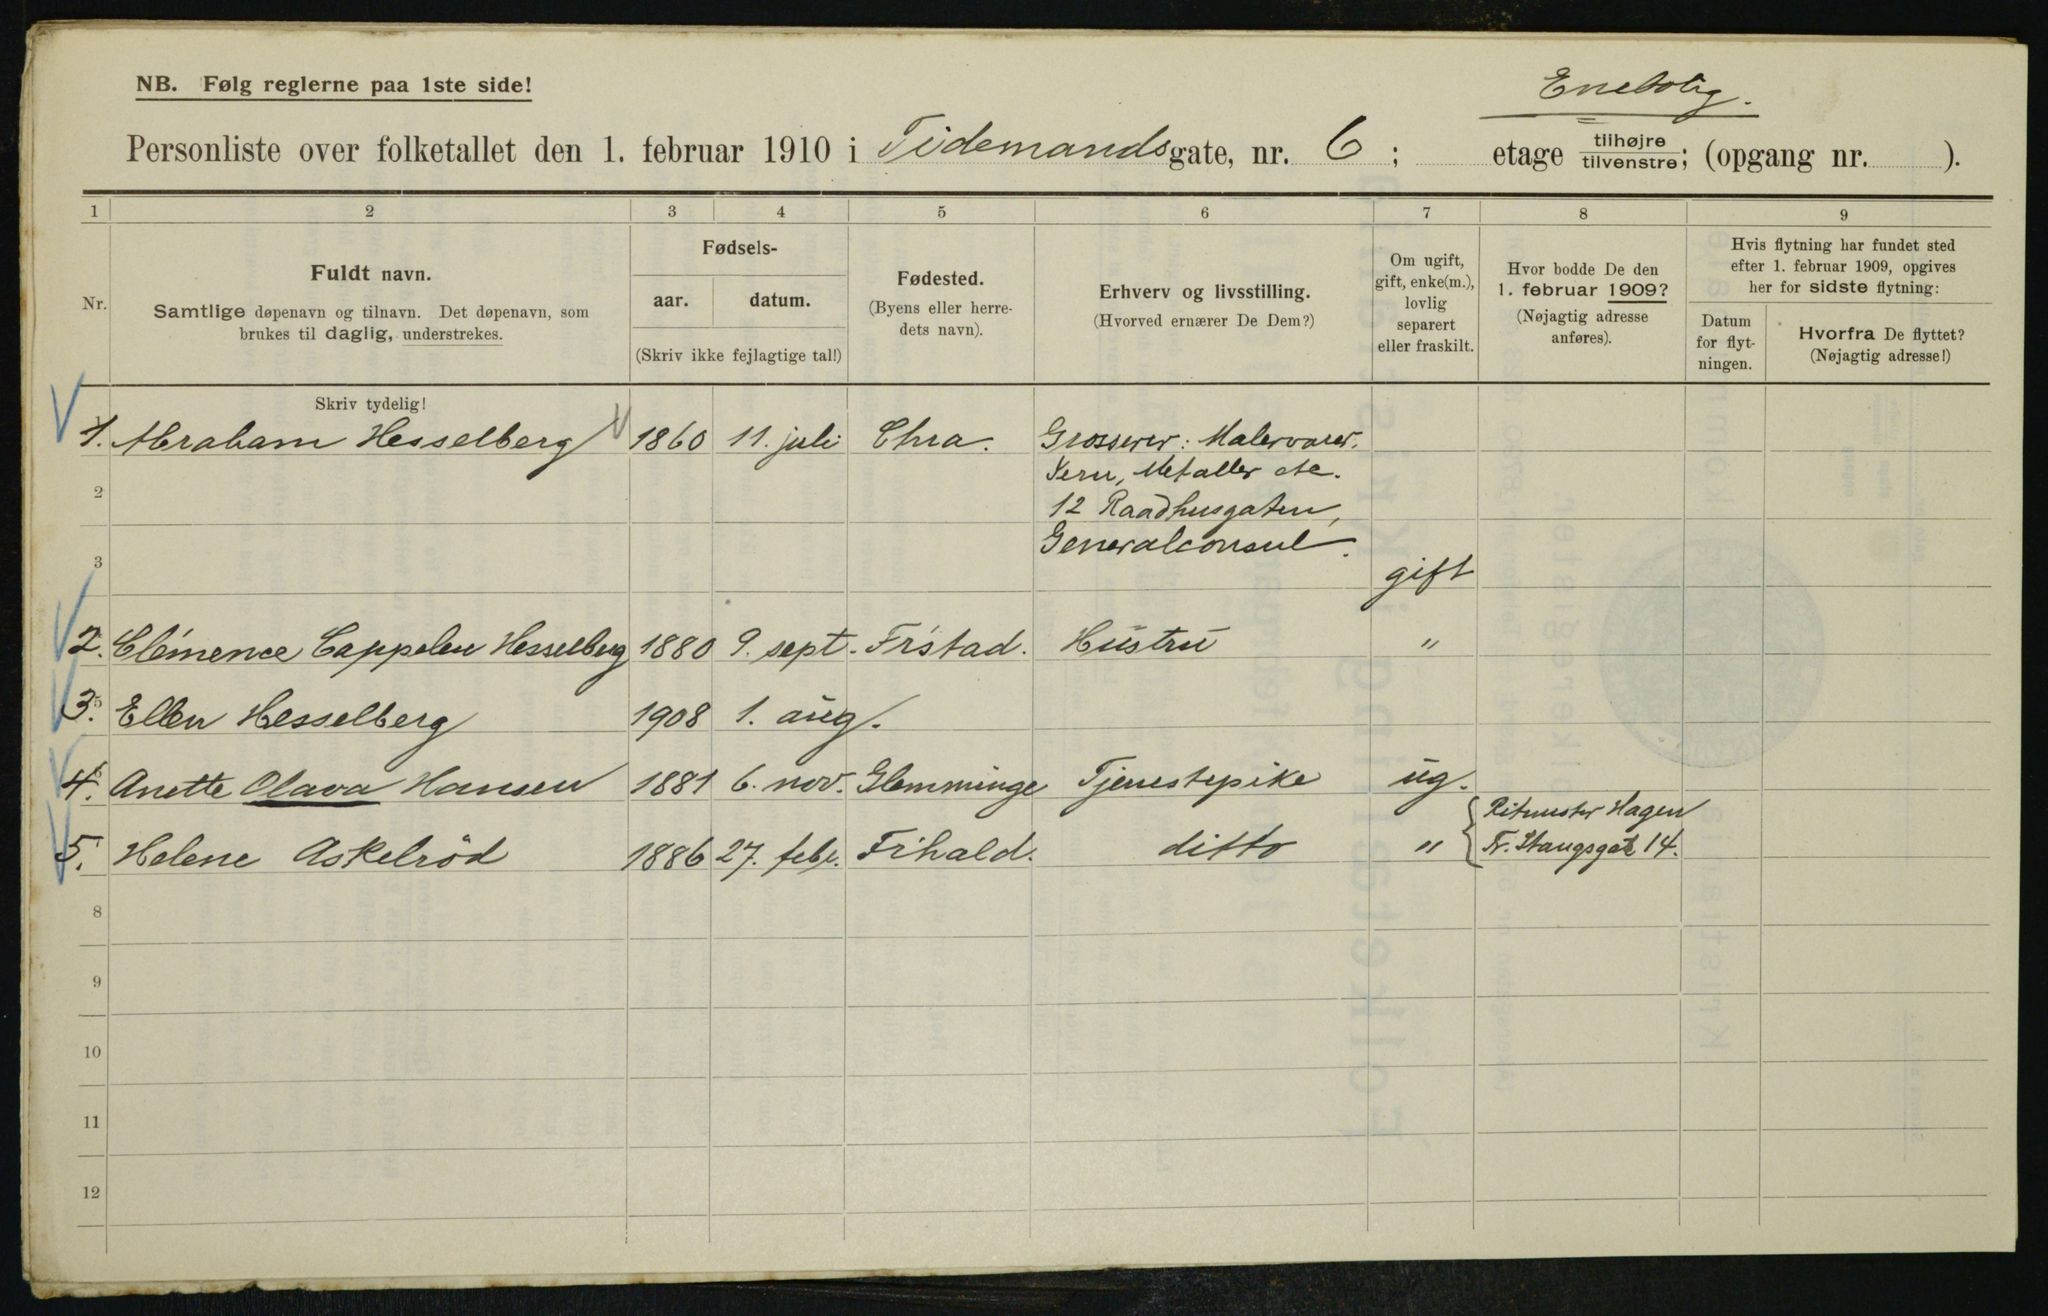 NB. Følg reglerne paa 1ste side!
Enebolig.
Personliste over folketallet den 1. februar 1910 i Tidemandsgate, nr. 6; etage tilhøjre tilvenstre; (opgang nr. ).
1 2 3 4 5 6 7 8 9
Nr.
Fuldt navn.
Samtlige døpenavn og tilnavn. Det døpenavn, som
brukes til daglig, understrekes.
Skriv tydelig!
Fødsels-
aar. datum.
(Skriv ikke fejlagtige tal!)
Fødested.
(Byens eller herre-
dets navn).
Erhverv og livsstilling.
(Hvorved ernærer De Dem?)
Om ugift,
gift, enke(m.),
lovlig
separert
eller fraskilt.
Hvor bodde De den
1. februar 1909?
(Nøjagtig adresse
anføres).
Hvis flytning har fundet sted
efter 1. februar 1909, opgives
her for sidste flytning:
Datum
for flyt-
ningen.
Hvorfra De flyttet?
(Nøjagtig adresse!)
1. Abraham Hesselberg 1860 11. juli Chra. Grosserer: Malervarer.
Jern, Metaller etc.
2 12 Raadhusgaten,
Generalconsul.
3 gift
2. Clémence Cappelen Hesselberg 1880 9. sept. Fr'stad. Hustru "
3. Ellen Hesselberg 1908 1. aug.
4. Anette Olava Hansen 1881 6. nov. Glemminge Tjenestepike ug.
Ritmester Hagen
5. Helene Askelröd 1886 27. febr. F'hald. ditto " Fr. Stangsgate 14.
8
9
10
11
12